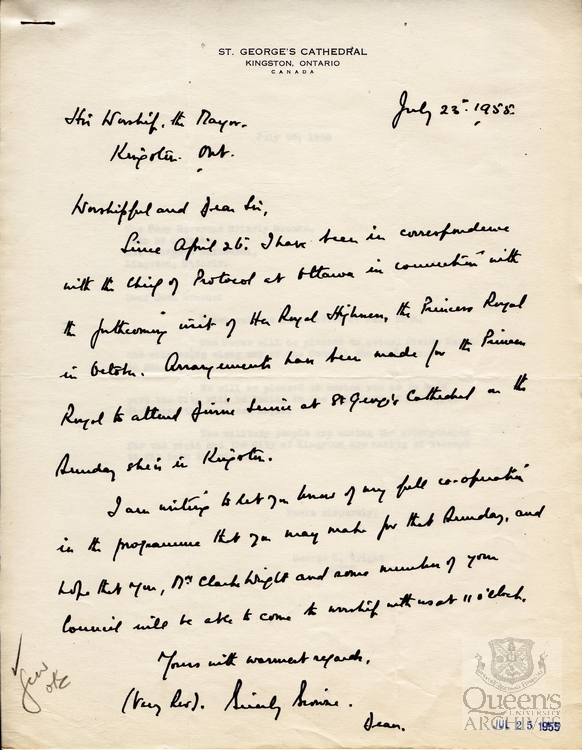 ST. GEORGE'S CATHEDRAL
KINGSTON, ONTARIO
CANADA
July 23. 1955.
His Worship, the Mayor.
Kingston. Ont.
Worshipful and Dear Sir,
Since April 26. I have been in correspondence
with the Chief of Protocol at Ottawa in connection with
the forthcoming visit of Her Royal Highness, the Princess Royal
in October. Arrangements have been made for the Princess
Royal to attend Divine Service at St George's Cathedral on the
Sunday she is in Kingston.
I am writing to let you know of my full co-operation
in the programme that you may make for that Sunday, and
hope that you, Mrs Clarke Wright and some member of your
Council will be able to come to worship with us at 11 o'clock.
Yours with warmest regards,
(Very Rev). Briarly Browne.
Dean.
Queen's
UNIVERSITY
ARCHIVES
JUL 25 1955